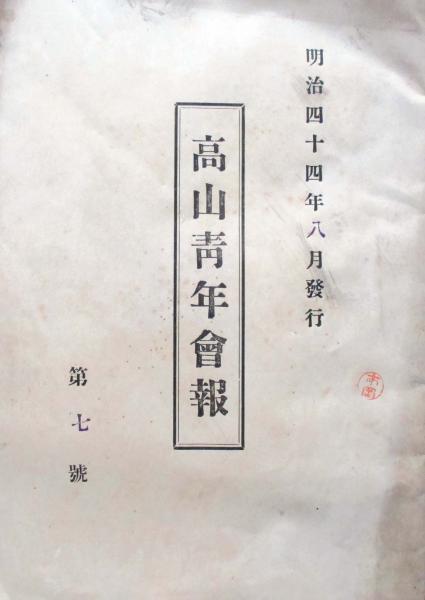 明治四十四年八月發行
高山靑年會報
第七號